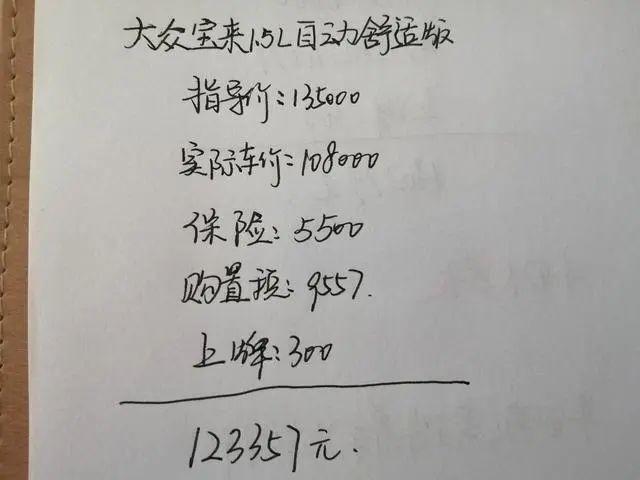 大众宝来1.5L自动舒适版
指导价:135000
实际车价:108000
保险:5500
购置税:9557.
上牌:300
123357元.